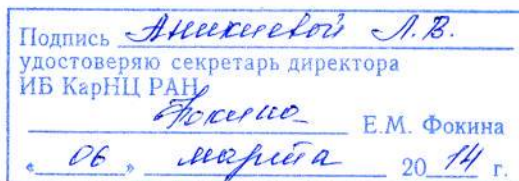 Подпись Аникиевой Л.В.
удостоверяю секретарь директора
ИБ КарНЦ РАН
Фокина Е.М. Фокина
« 06 » марта 2014 г.